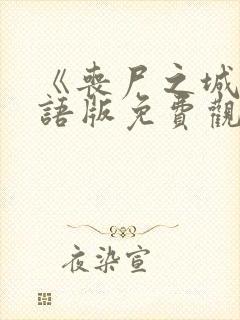 《喪尸之城
語版免費觀
夜染宣